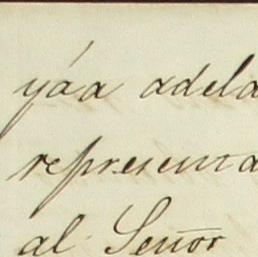 yáa adela
representa
al Señor